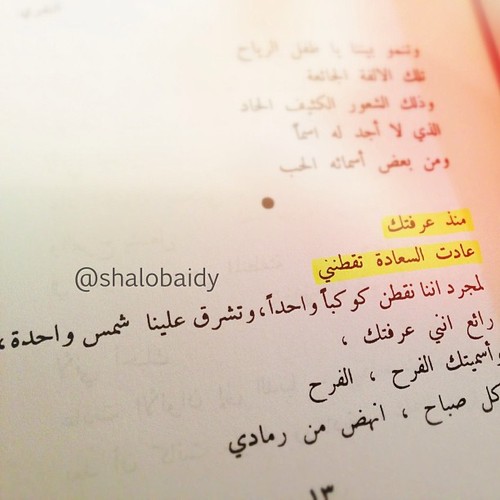 وتنمو بيننا يا طفل الرياح
تلك الالفة الجائعة
وذلك الشعور الكثيف الحاد
الذي لا أجد له اسماً
ومن بعض أسمائه الحب
منذ عرفتك
عادت السعادة تقطنني
@shalobaidy
لمجرد اننا نقطن كوكباً واحداً، وتشرق علينا شمس واحدة،
رائع انني عرفتك ،
وأسميتك الفرح ، الفرح
كل صباح ، انهض من رمادي
١٣